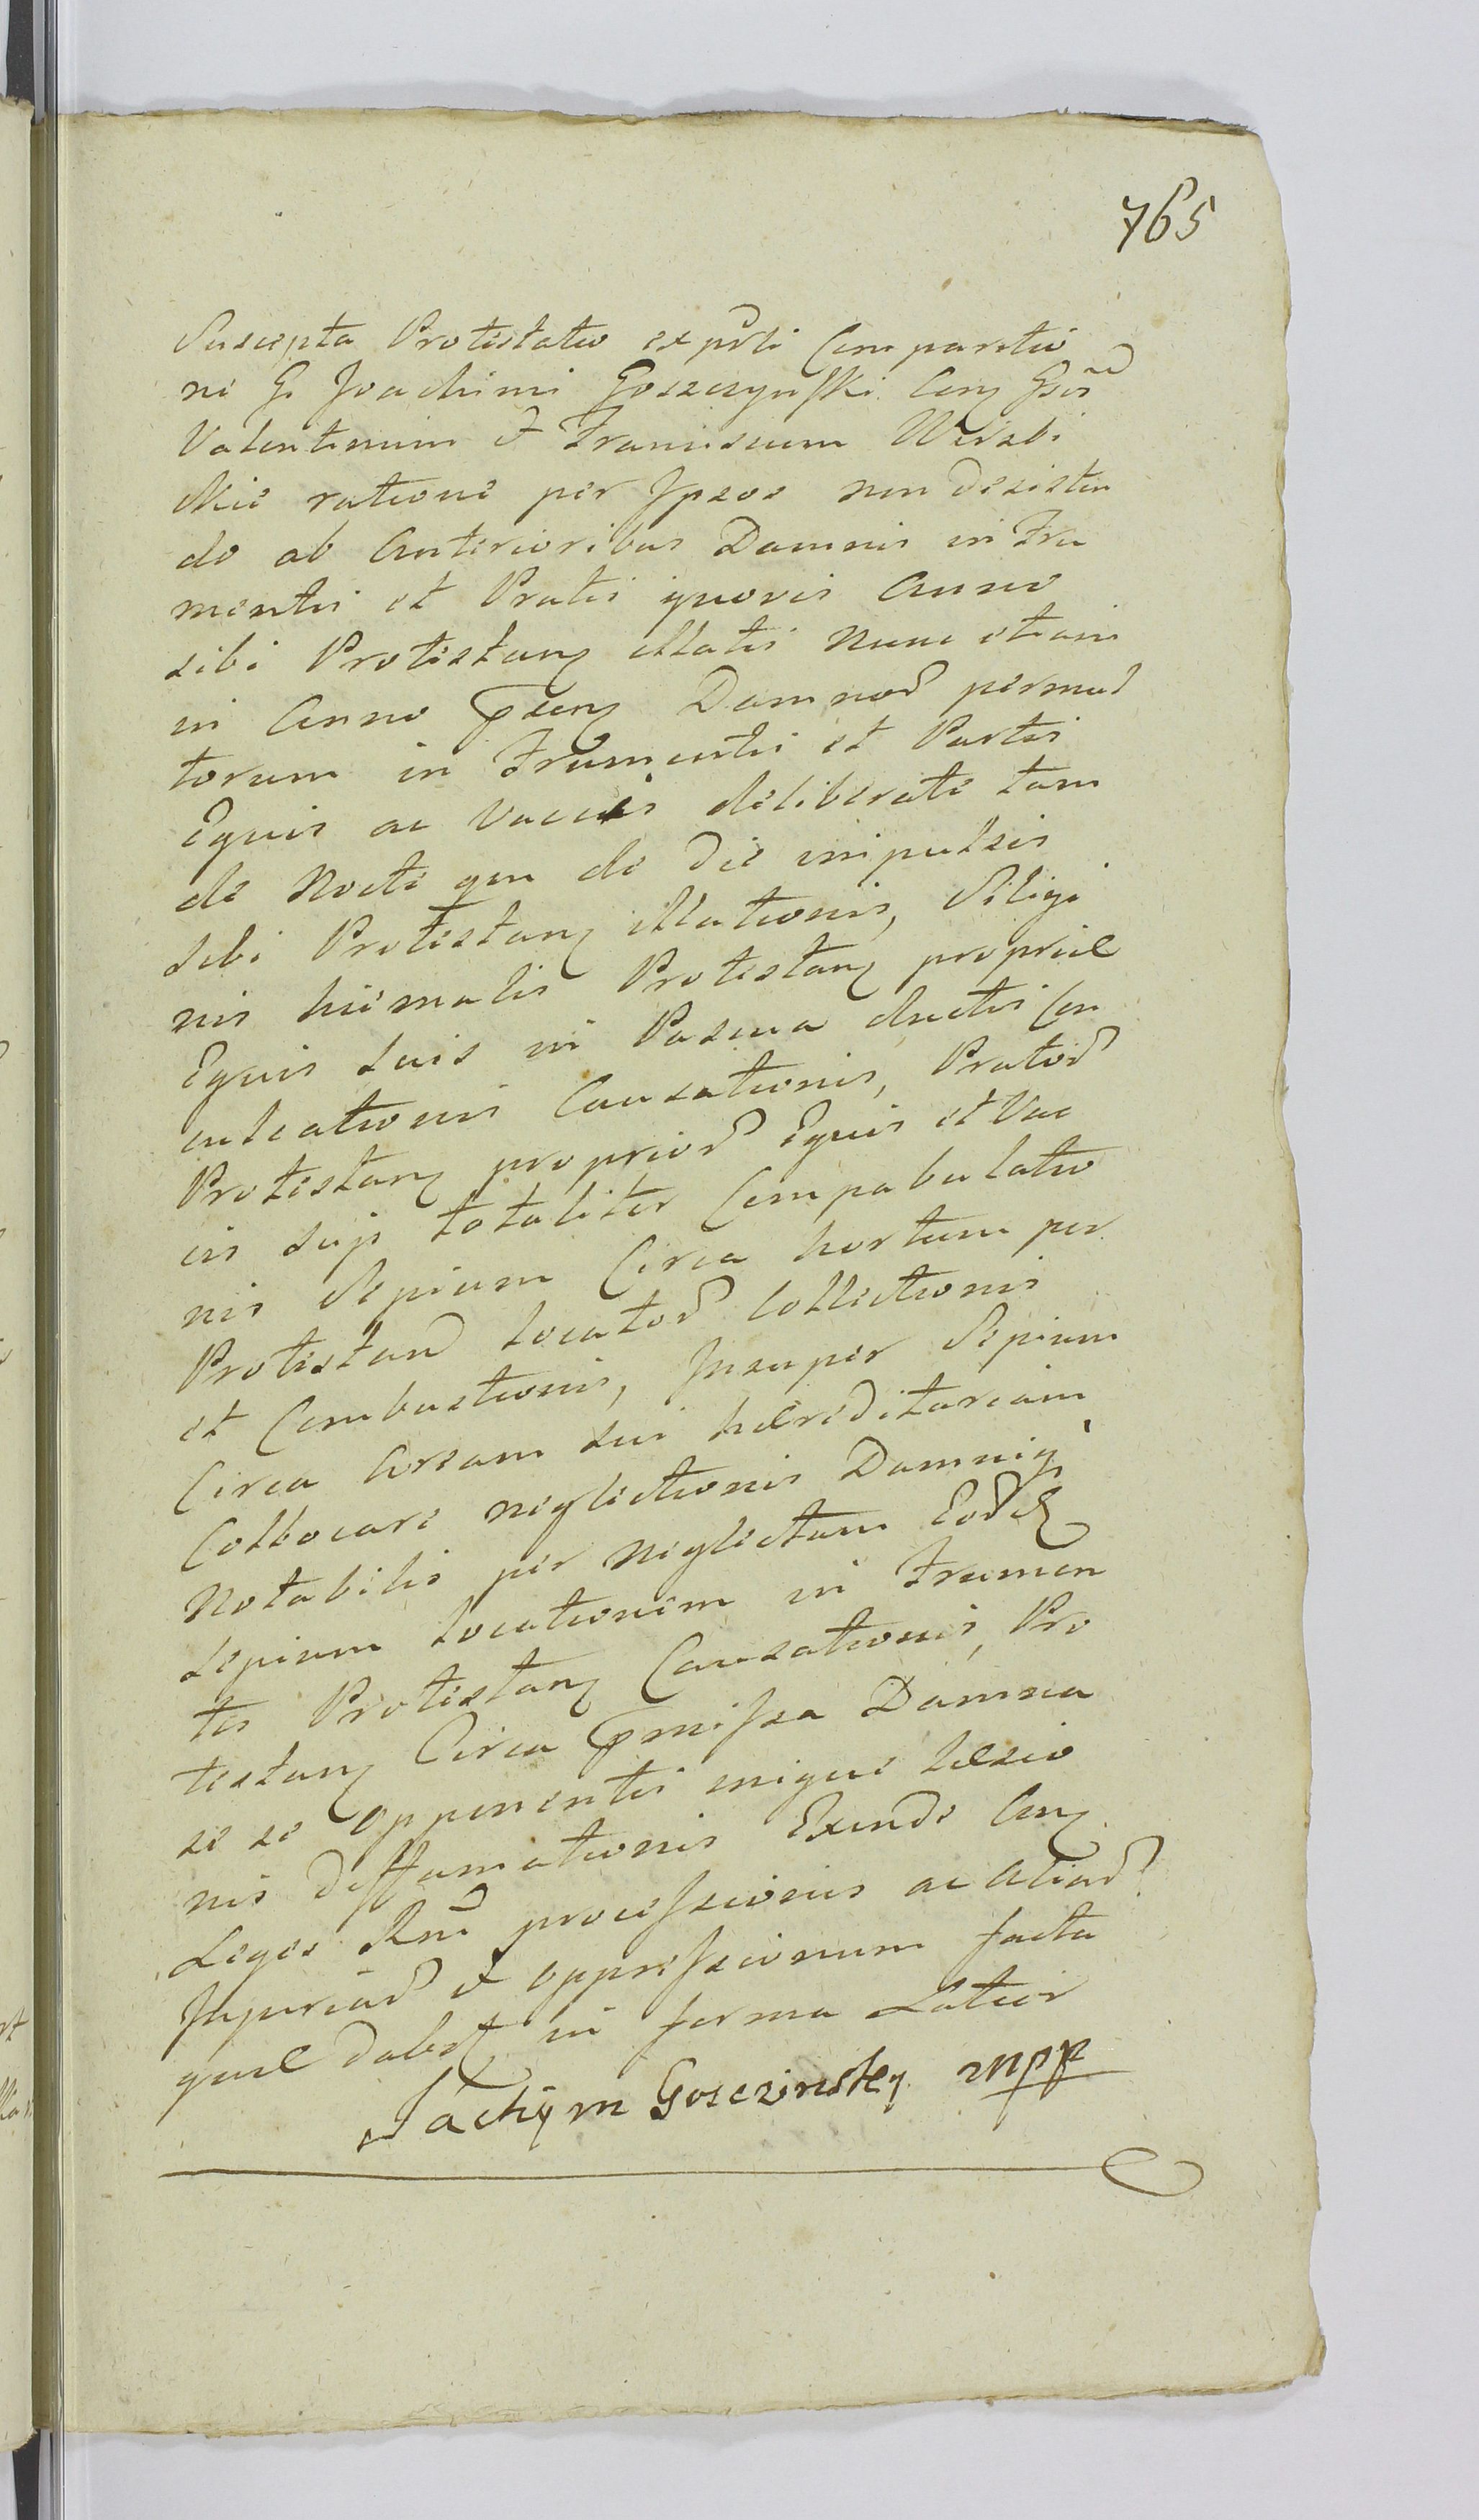 765
Suscepta Protestatio ex psti Comparitio
ne G. Joachimi Goszczynski Con Gsos
Valentinum et Franciscum Wierzbi
ckie ratione per Ipsos non desisten
do ab Anterioribus Damnis in Fru
mentis et Pratis quovis Anno
sibi Protestan illatis nunc etiam
in Anno psen Damnor permul
torum in Frumentis et Partis
Equis ac Vaccis deliberate tam
de Nocte qm de die impulsis
sibi Protestan illationis, Siligi
nis hiemalis Protestan propriae
Equis suis in Pascua ductis Con
culcationis Causationis, Prator
Protestan proprior Equis et Vac
cis suis totaliter Compabulatio
nis Sepium Circa hortum per
Protestan locator Collectionis
et Combustionis, Insuper Sepium
Circa Aream sui haereditariam
Collocare neglectionis Damniq
Notabilis per neglectam Eor
sepium locationem in Frumen
tis Protestan Causationis, Pro
testan Circa pmissa Damna
se se opponentis inique laesio
nis diffamationis Exinde Con
Leges Rni processionis ac aliar
Injuriar et oppressionum facta
quae dabit in forma Latior
Jachym Gosczinsky mpp